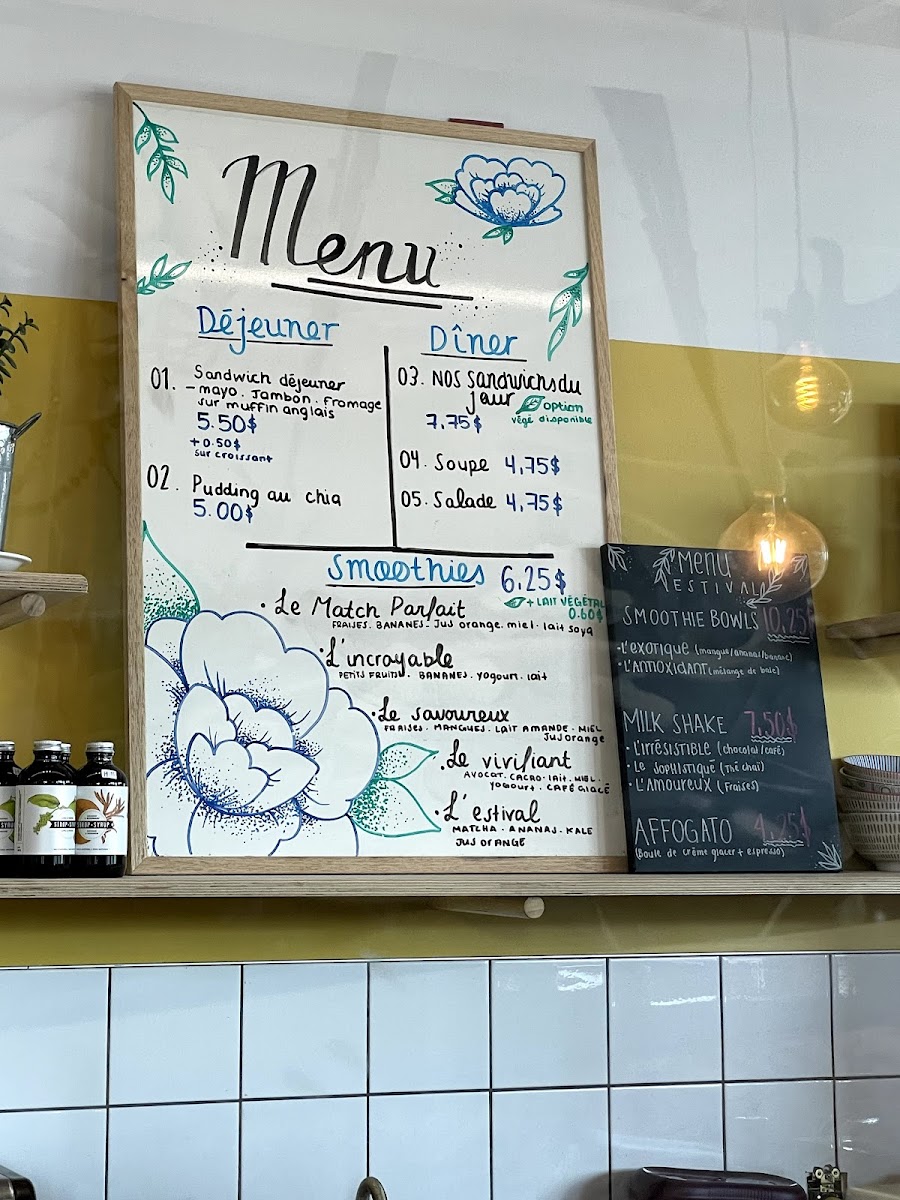 Menu
Déjeuner
01. Sandwich déjeuner
- mayo. Jambon. fromage
sur muffin anglais
5.50$
+0.50$
sur croissant
02. Pudding au chia
5.00$
Dîner
03. NOS Sandwichs du
jour
option
7,75$
végé disponible
04. Soupe 4,75$
05. Salade 4,75$
Smoothies 6.25$
+ LAIT VÉGÉTAL
0.60$
• Le Match Parfait
FRAISES. BANANES. Jus orange. miel. lait soya
• L'incroyable
PETITS FRUITS. BANANES. yogourt. lait
• Le savoureux
FRAISES. MANGUES. LAIT AMANDE. MIEL
Jus orange
• Le vivifiant
AVOCAT. CACAO. lait. MIEL.
Yogourt. CAFÉ GLACÉ
• L'estival
MATCHA. ANANAS. KALE
JUS ORANGE
MENU
ESTIVAL
SMOOTHIE BOWLS 10,25$
• L'EXOTIQUE (mangue/ananas/banane)
• L'ANTIOXIDANT (mélange de baie)
MILK SHAKE 7,50$
• L'IRRÉSISTIBLE (chocolat/café)
• Le SOPHISTIQUÉ (Thé chaï)
• L'AMOUREUX (Fraises)
AFFOGATO 4,25$
(Boule de crème glacer + espresso)